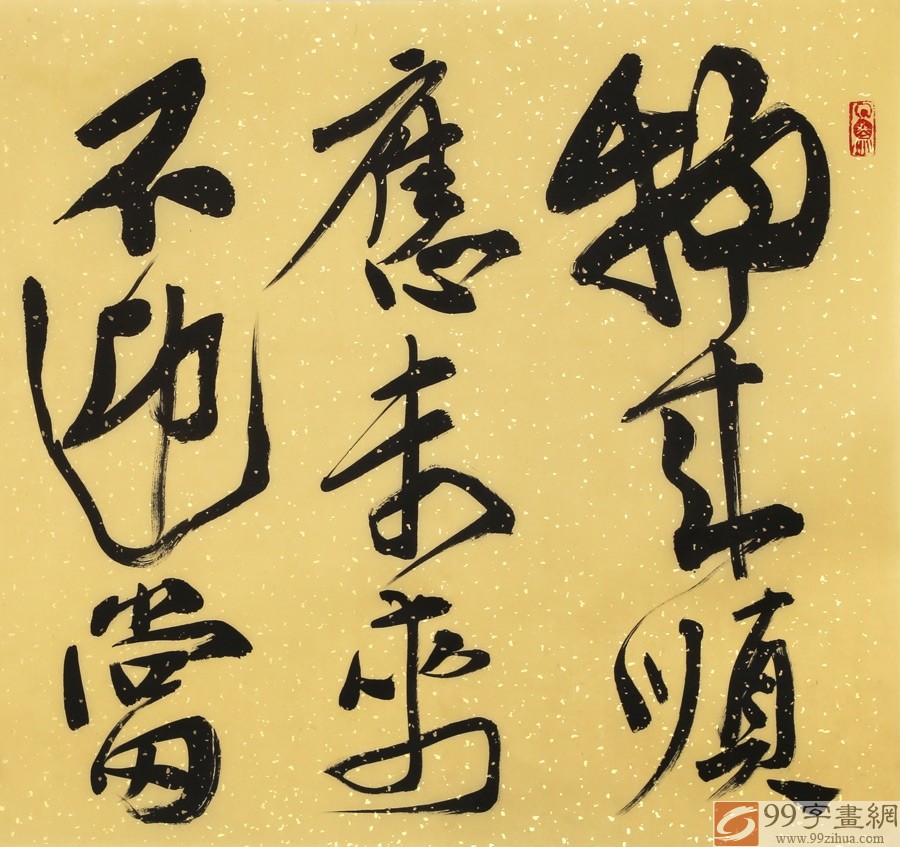 物來順
應未來
不迎當
99字畫網
www.99zihua.com